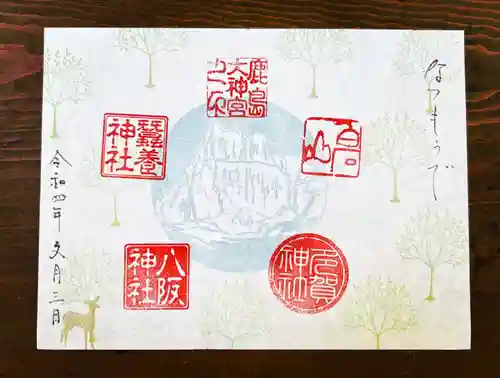 なつもうで
鹿島
大神宮
之印
高
山
蠶養
神社
多賀
神社
八阪
神社
令和四年 文月三日